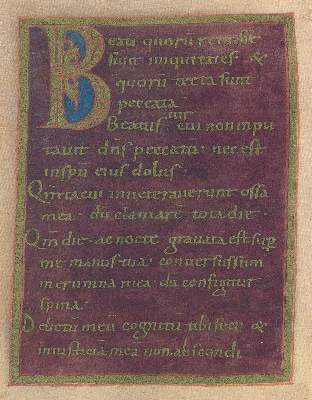 Beati quorū remisse
sunt iniquitates &
quorū tecta sunt
peccata
Beatus uir cui non inpu
tauit dn̄s peccatū nec est
in spū eius dolus
Qm̄ tacui inueterauerunt ossa
mea dū clamarē tota die
Qm̄ die ac nocte grauata est sup̄
me manus tua conuersus sum
in erumna mea dū configitur
spina
Delictū meū cognitū tibi feci &
iniustitiā meā non abscondi